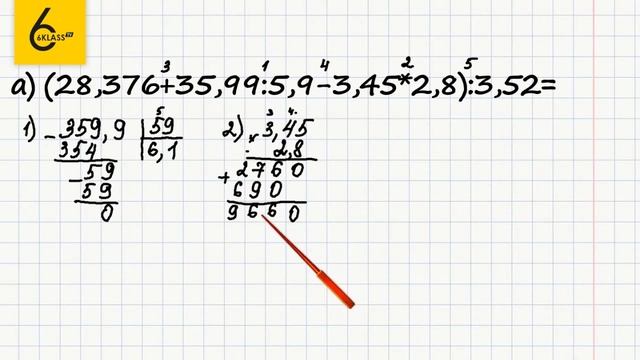 6
6KLASS TV
3 1 4 2 5
а) (28,376+35,99:5,9-3,45*2,8):3,52=
1) 359,9 59 2) 3,45
354 6,1 2,8
-59 2760
59 +690
0 9660